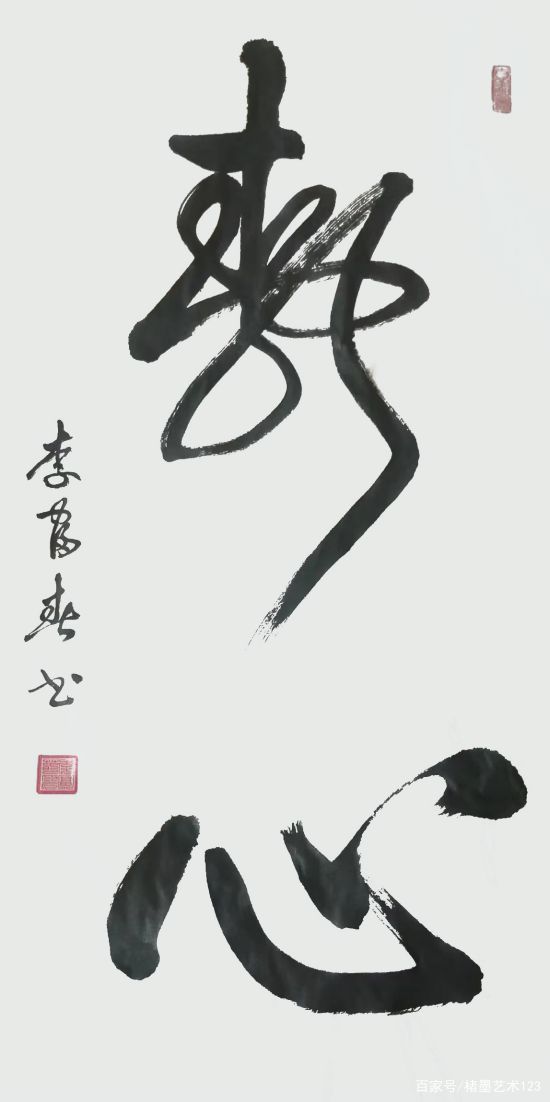 静心
李春书
百家号/楮墨艺术123